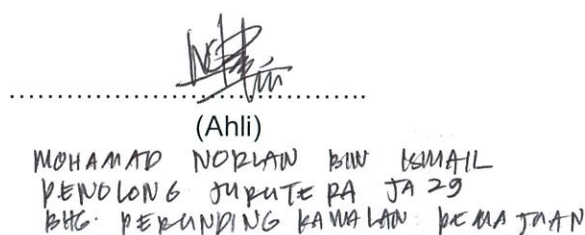 (Ahli)
MOHAMAD NORLAN BIN ISMAIL
PENOLONG JURUTERA JA 29
BHG. PERUNDING KAWALAN KEMAJUAN